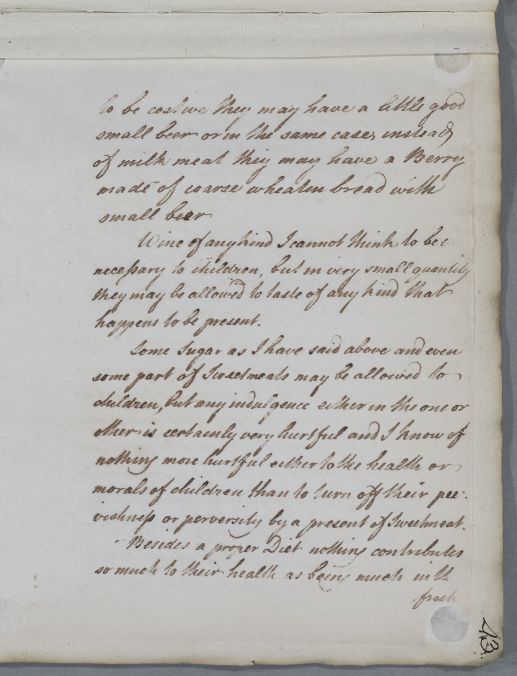 to be costive they may have a little good
small beer or in the same case, instead
of milk meat they may have a Berry
made of coarse wheaten bread with
small beer
Wine of any kind I cannot think to be
necessary to children, but in very small quantity
they may be allowed to taste of any kind that
happens to be present.
Some Sugar as I have said above and even
some part of Sweetmeats may be allowed to
children, but any indulgence either in the one or
other is certainly very hurtful and I know of
nothing more hurtful either to the health or
morals of children than to turn off their pee-
vishness or perversity by a present of Sweetmeat.
Besides a proper Diet nothing contributes
so much to their health as being much in th
fresh
43